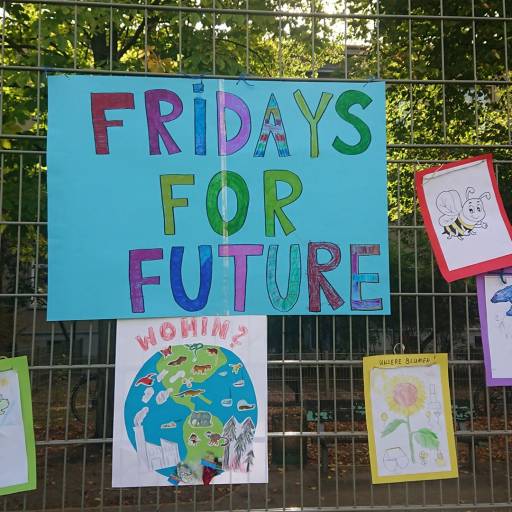 FRiDAYS
FOR
FUTURE
WOHIN?
UNSERE BLUMEN!